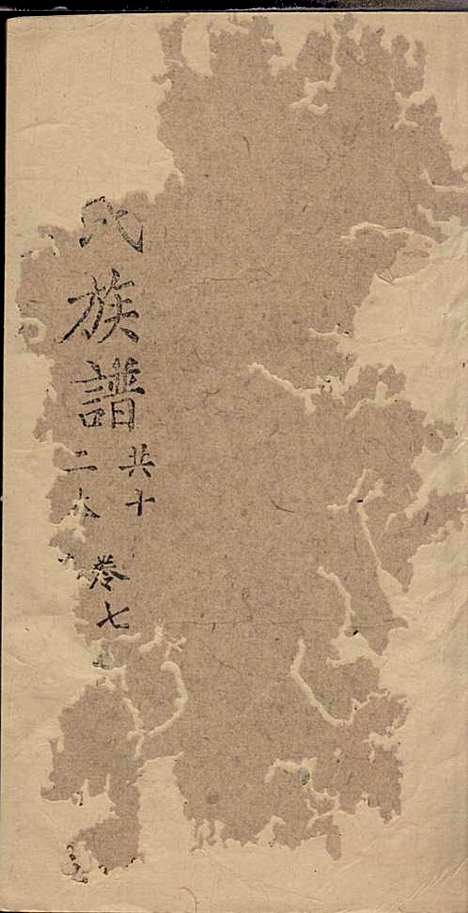 氏族譜
共十
二本
卷七